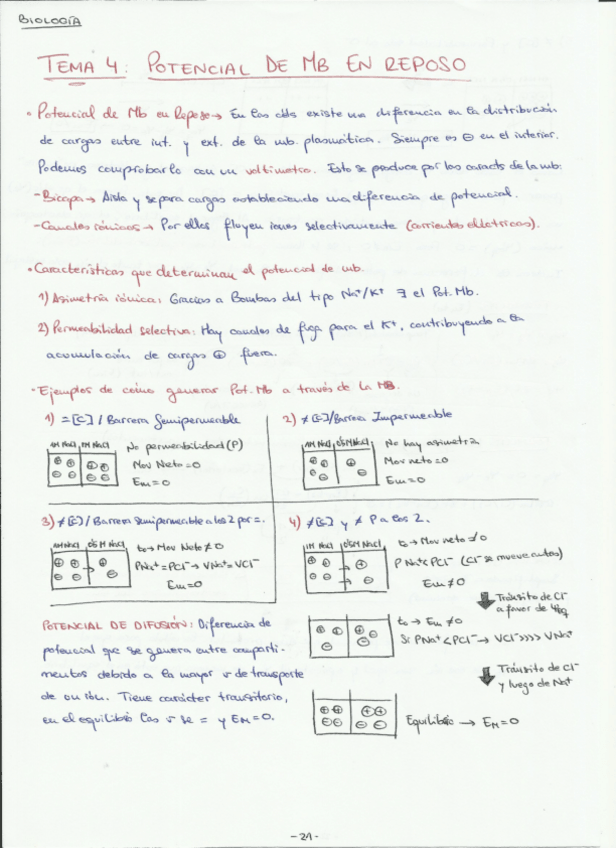 BIOLOGÍA
TEMA 4: POTENCIAL DE MB EN REPOSO
• Potencial de Mb en Reposo → En las cls existe una diferencia en la distribución
de cargas entre int. y ext. de la mb. plasmática. Siempre es ⊖ en el interior.
Podemos comprobarlo con un voltímetro. Esto se produce por las caracts de la mb:
- Bicapa → Aísla y separa cargas estableciendo una diferencia de potencial.
- Canales iónicos → Por ellos fluyen iones selectivamente (corrientes eléctricas).
• Características que determinan el potencial de mb.
1) Asimetría iónica: Gracias a Bombas del tipo Na⁺/K⁺ ∃ el Pot. Mb.
2) Permeabilidad selectiva: Hay canales de fuga para el K⁺, contribuyendo a la
acumulación de cargas ⊕ fuera.
• Ejemplos de cómo generar Pot. Mb a través de la MB.
1) = [C] / Barrera Semipermeable
1M NaCl 1M NaCl
No permeabilidad (P)
Mov Neto = 0
Em = 0
2) ≠ [C] / Barrera Impermeable
1M NaCl 0'5M NaCl
No hay asimetría
Mov neto = 0
Em = 0
3) ≠ [C] / Barrera semipermeable a los 2 por =.
1M NaCl 0'5M NaCl
t₀ → Mov Neto ≠ 0
PNa⁺ = PCl⁻ → VNa⁺ = VCl⁻
Em = 0
4) ≠ [C] y ≠ P a los 2.
1M NaCl 0'5M NaCl
t₀ → Mov neto ≠ 0
PNa⁺ < PCl⁻ (Cl⁻ se mueve antes)
Em ≠ 0
Tránsito de Cl⁻
a favor de
t₀ → Em ≠ 0
Si PNa⁺ < PCl⁻ → VCl⁻ >>>> VNa⁺
Tránsito de Cl⁻
y luego de Na⁺
Equilibrio → EM = 0
POTENCIAL DE DIFUSIÓN: Diferencia de
potencial que se genera entre comparti-
mentos debido a la mayor v de transporte
de un ión. Tiene carácter transitorio,
en el equilibrio las v se = y EM = 0.
- 21 -